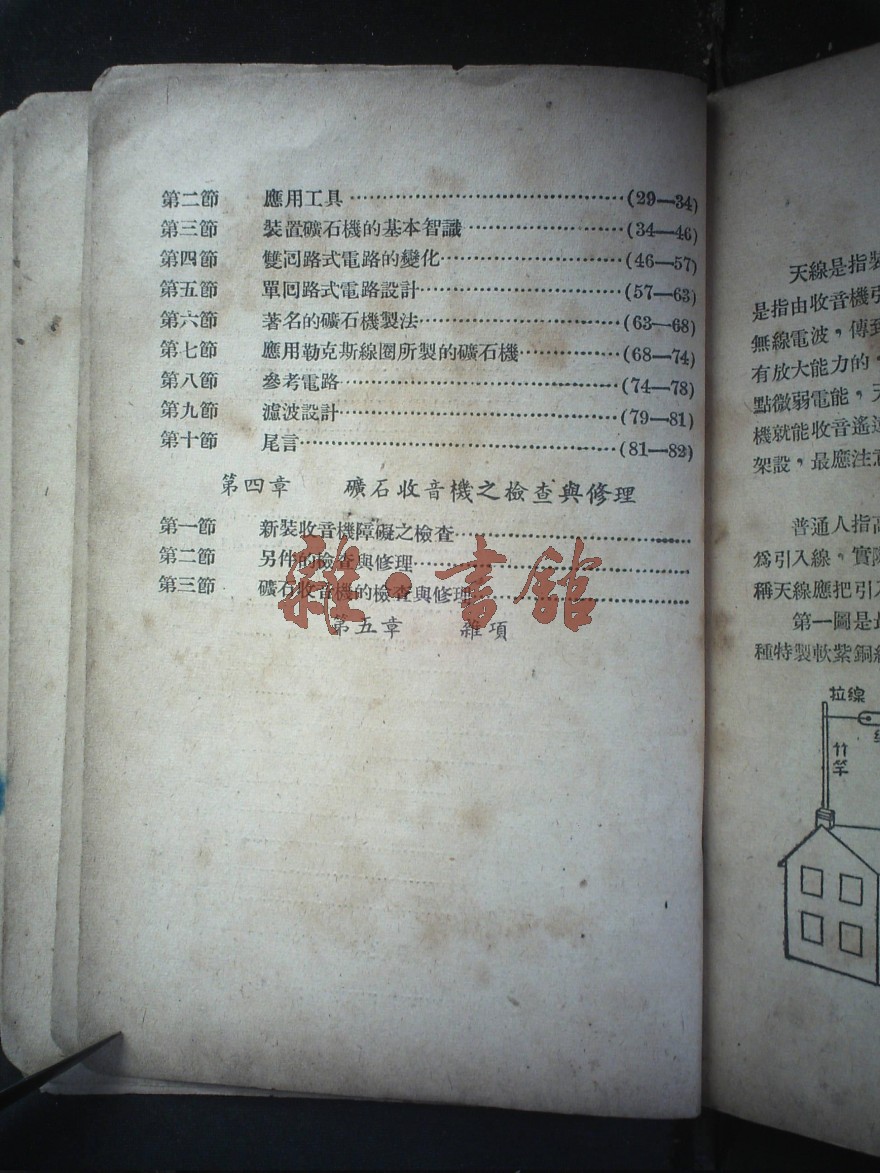 第二節 應用工具……………………………(29—34)
第三節 裝置礦石機的基本智識………………(34—46)
第四節 雙囘路式電路的變化…………………(46—57)
第五節 單囘路式電路設計……………………(57—63)
第六節 著名的礦石機製法……………………(63—68)
第七節 應用勒克斯線圈所製的礦石機………(68—74)
第八節 參考電路………………………………(74—78)
第九節 濾波設計………………………………(79—81)
第十節 尾言……………………………………(81—82)
第四章 礦石收音機之檢查與修理
第一節 新裝收音機障礙之檢查………………………
第二節 另件的檢查與修理……………………………
第三節 礦石收音機的檢查與修理……………………
第五章 雜項
雜·書館
天線是指裝
是指由收音機引
無線電波，傳到
有放大能力的，
點微弱電能，天
機就能收音遙遠
架設，最應注意
普通人指高
爲引入線，實際
稱天線應把引入
第一圖是最
種特製軟紫銅線
拉線
竹竿